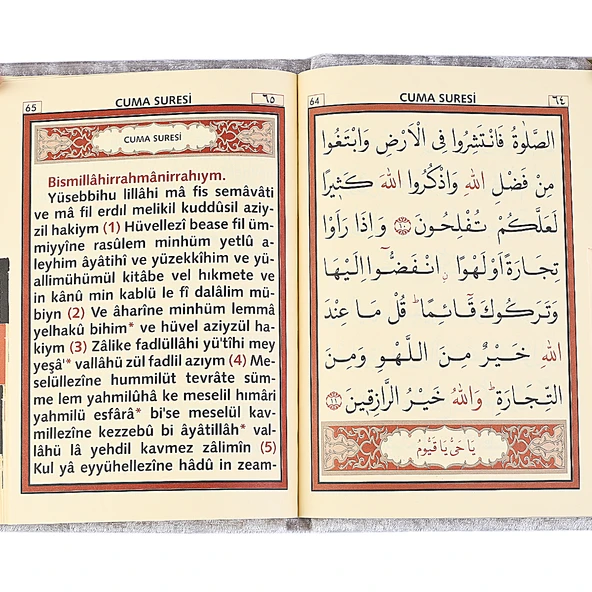 64 CUMA SURESİ ٦٤
الصَّلٰوةُ فَانْتَشِرُوا فِى الْاَرْضِ وَابْتَغُوا
مِنْ فَضْلِ اللهِ وَاذْكُرُوا اللهَ كَثٖيرًا
لَعَلَّكُمْ تُفْلِحُونَ ١٠ وَاِذَا رَاَوْا
تِجَارَةً اَوْ لَهْوًا ۨ انْفَضُّٓوا اِلَيْهَا
وَتَرَكُوكَ قَٓائِمًا ۜ قُلْ مَا عِنْدَ
اللهِ خَيْرٌ مِنَ اللَّهْوِ وَمِنَ
التِّجَارَةِ ۜ وَاللهُ خَيْرُ الرَّازِقٖينَ ١١
يَا حَىُّ يَا قَيُّومُ
65 CUMA SURESİ ٦٥
CUMA SURESİ
Bismillâhirrahmânirrahıym.
Yüsebbihu lillâhi mâ fis semâvâti
ve mâ fil erdıl melikil kuddûsil aziy-
zil hakiym (1) Hüvellezî bease fil üm-
miyyîne rasûlem minhüm yetlû a-
leyhim âyâtihî ve yüzekkîhim ve yü-
allimühümül kitâbe vel hıkmete ve
in kânû min kablü le fî dalâlim mü-
biyn (2) Ve âharîne minhüm lemmâ
yelhakû bihim* ve hüvel aziyzül ha-
kiym (3) Zâlike fadlüllâhi yü'tîhi mey
yeşâ'* vallâhü zül fadlil azıym (4) Me-
selüllezîne hummilüt tevrâte süm-
me lem yahmilûhâ ke meselil hımâri
yahmilü esfârâ* bi'se meselül kav-
millezîne kezzebû bi âyâtillâh* val-
lâhü lâ yehdil kavmez zâlimîn (5)
Kul yâ eyyühellezîne hâdû in zeam-